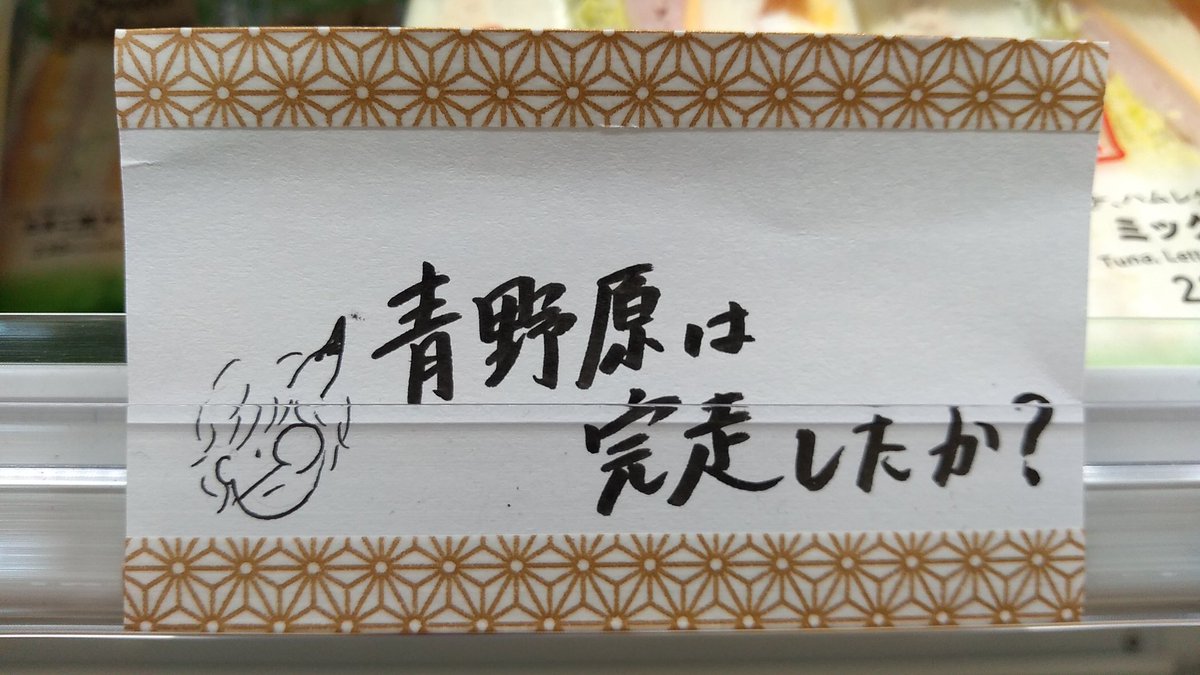 青野原は
完走したか?
ハムレタ
ミック
Tuna. Lett